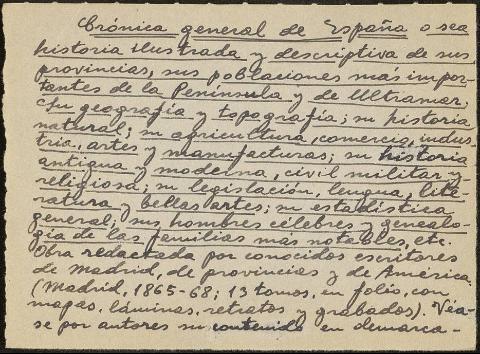 Crónica general de España o sea
historia ilustrada y descriptiva de sus
provincias, sus poblaciones más impor-
tantes de la Península y de Ultramar;
su geografía y topografía; su historia
natural; su agricultura, comercio, indus-
tria, artes y manufacturas; su historia
antigua y moderna, civil militar y
religiosa; su legislación, lengua, lite-
ratura y bellas artes; su estadística
general; sus hombres célebres y genealo-
gía de las familias más notables, etc.
Obra redactada por conocidos escritores
de Madrid, de provincias y de América.
(Madrid, 1865-68; 13 tomos, en folio, con
mapas, láminas, retratos y grabados). Véa-
se por autores su contenido en demarca-